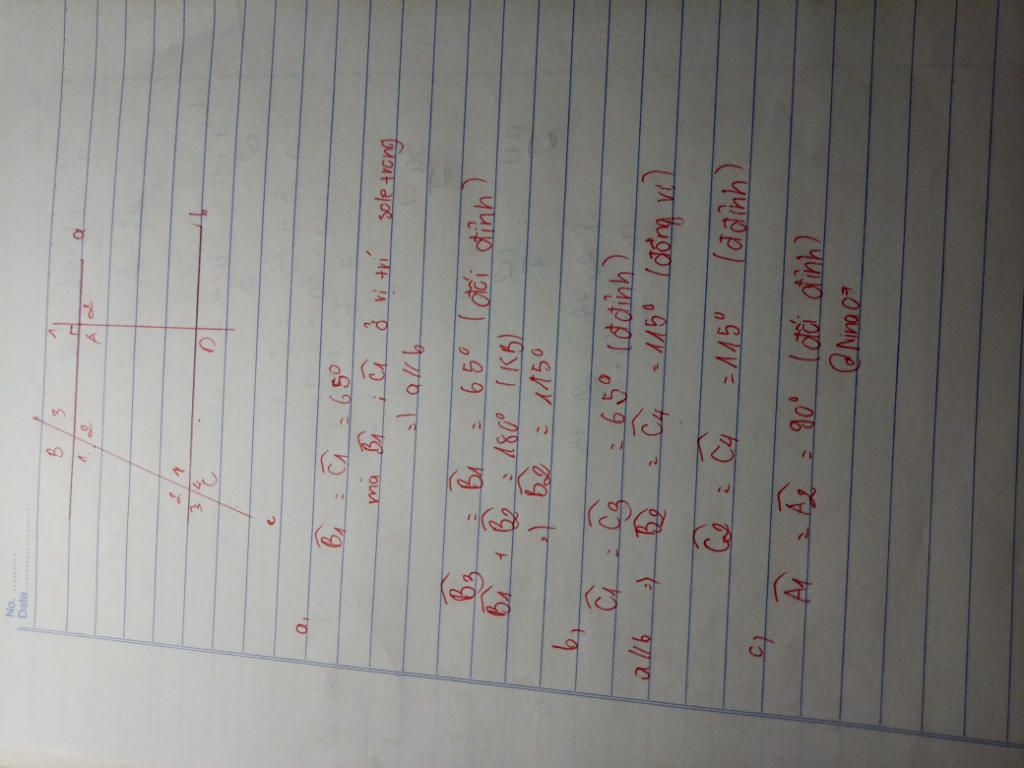 No. ............
Date ............
B 3 1 a
1 2 A 2
2 1 D b
3 4 C
c
a,
B1 = C1 = 65°
mà B1 ; C1 ở vị trí sole trong
=) a//b
B3 = B1 = 65° (đối đỉnh)
B1 + B2 = 180° (KB)
=) B2 = 115°
b, C1 = C3 = 65° (đ đỉnh)
a//b =) B2 = C4 = 115° (đồng vị)
C2 = C4 = 115° (đ đỉnh)
c) A1 = A2 = 90° (đối đỉnh)